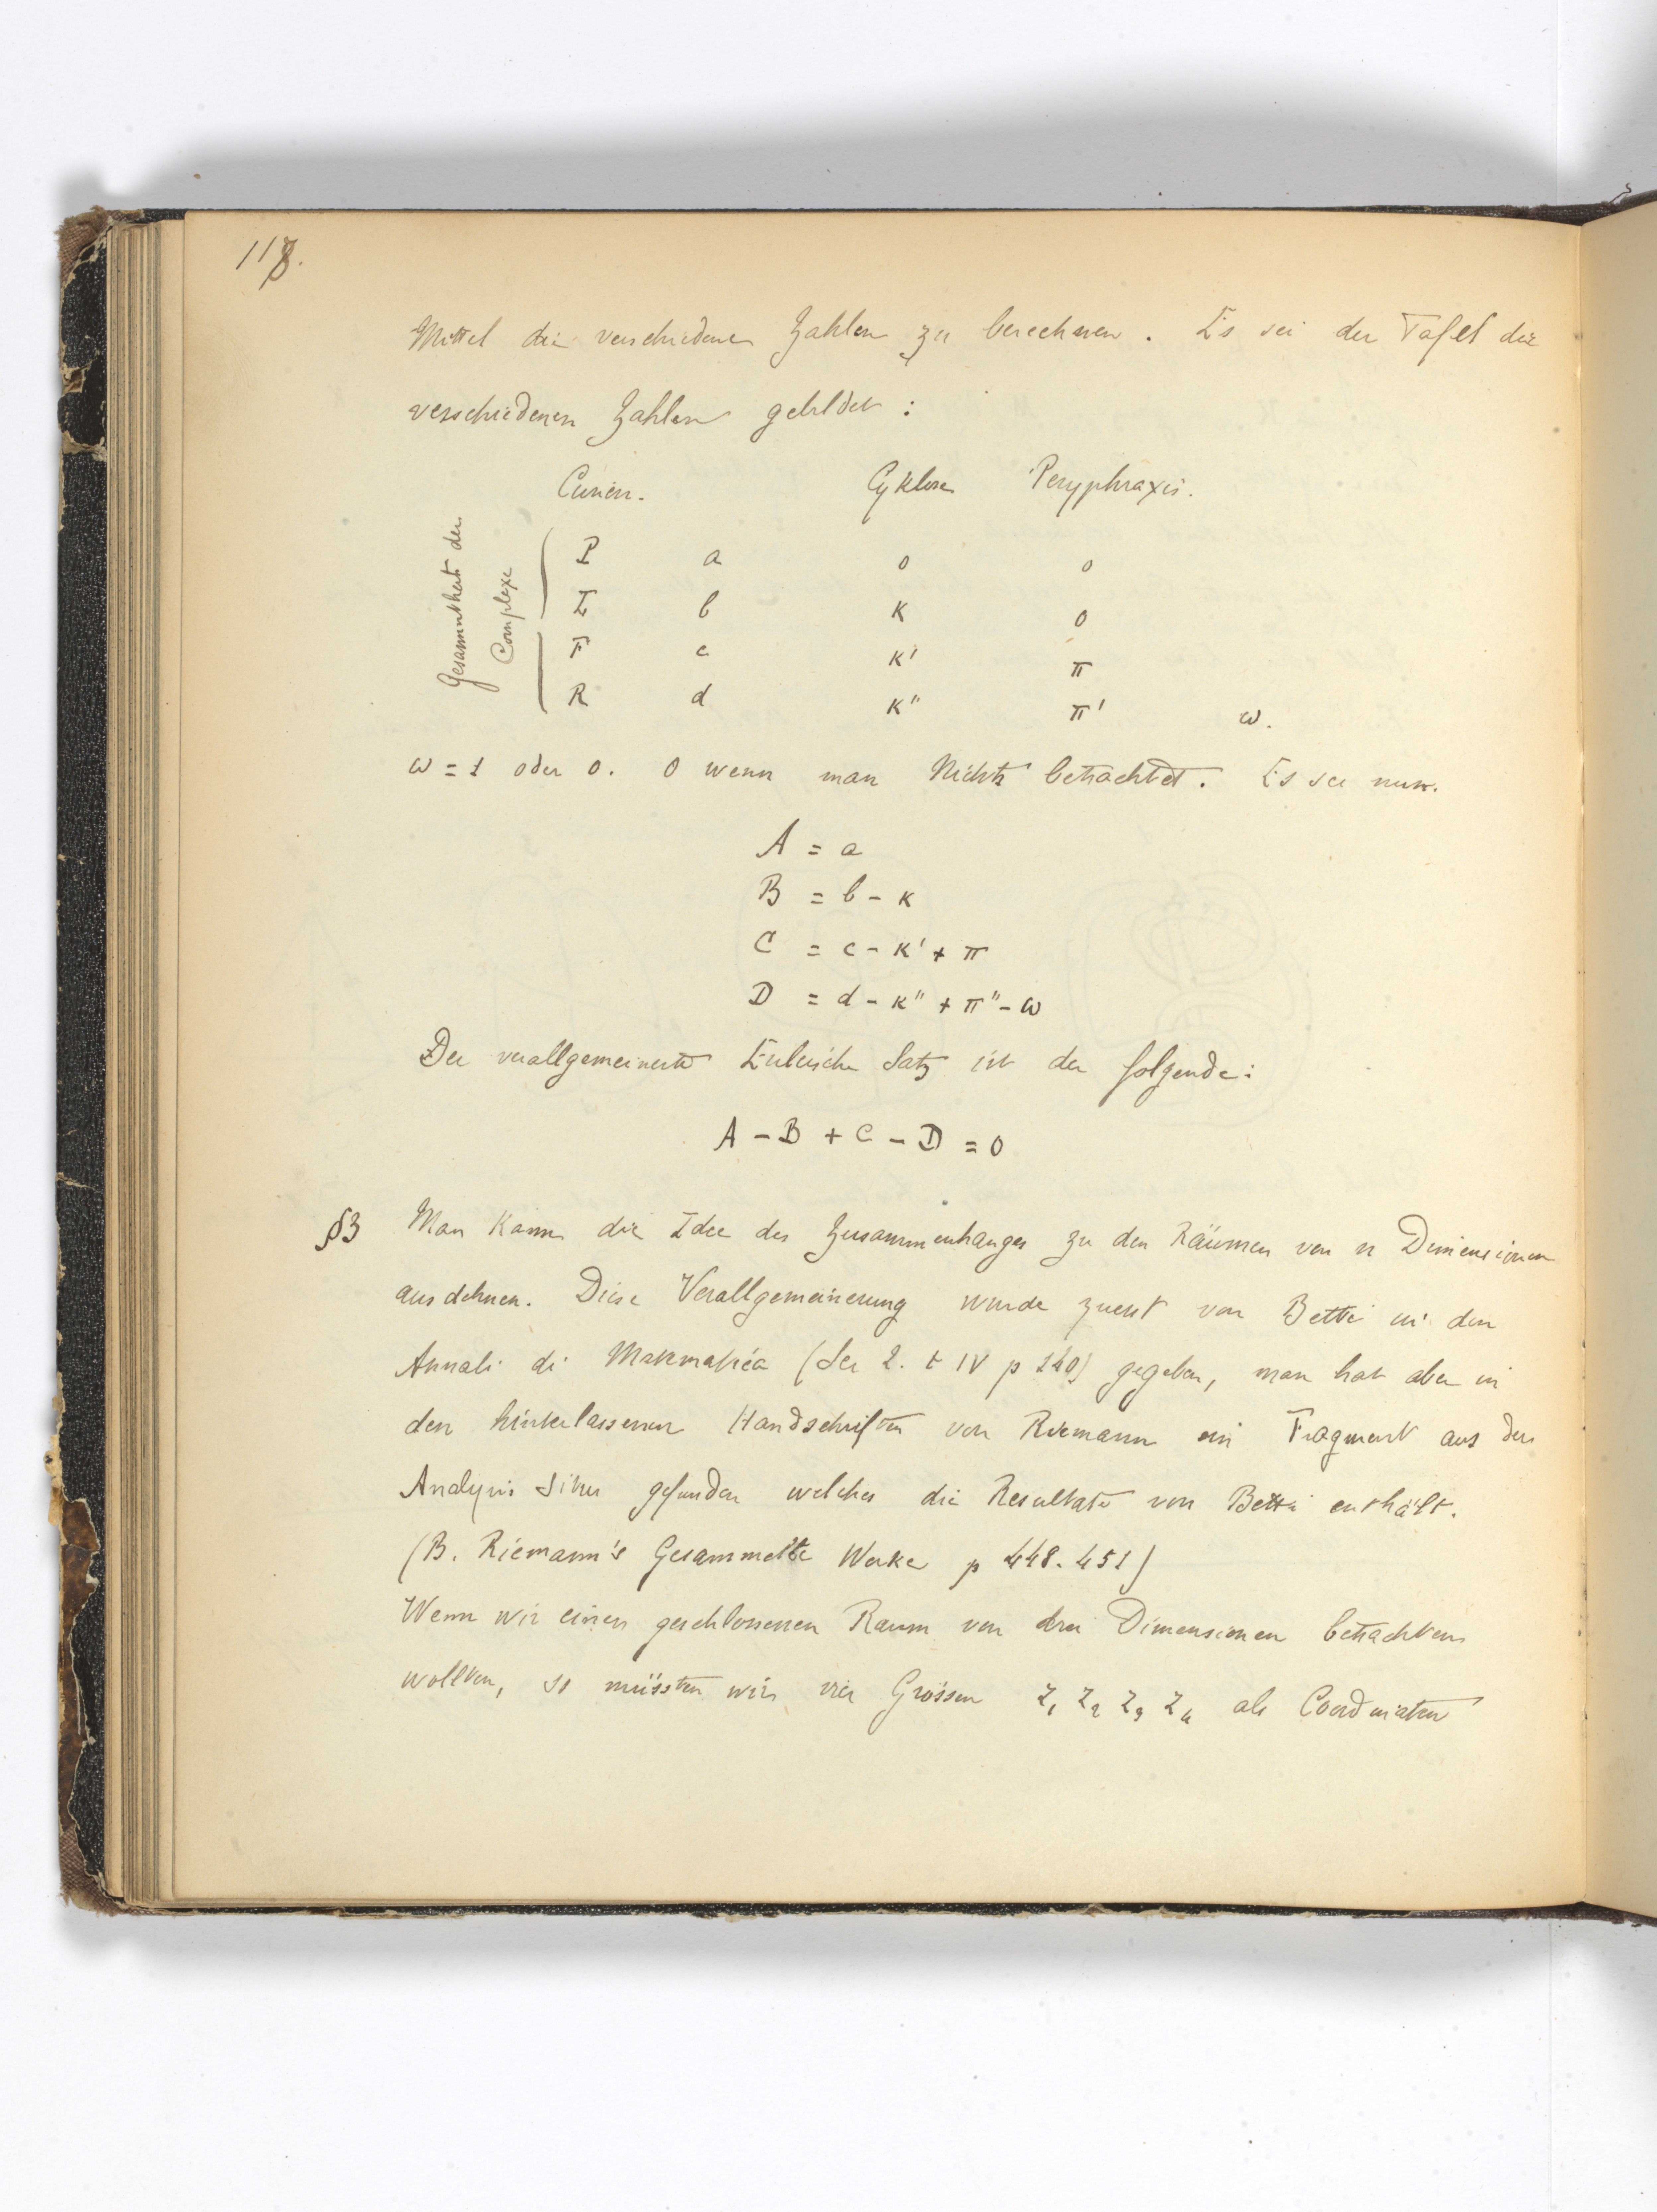 118.
Mittel die verschiedenen Zahlen zu berechnen. Es sei der Tafel die
verschiedenen Zahlen gebildet:
Curien. Cyklose Peryphraxis.
Gesammtheit der
Complexe
P a 0 0
L b K 0
F c K' π
R d K'' π' ω.
ω = 1 oder 0. 0 wenn man Nichts betrachtet. Es sei nun.
A = a
B = b - K
C = c - K' + π
D = d - K'' + π'' - ω
Der verallgemeinerte Eulersche Satz ist der folgende:
A - B + C - D = 0
§3 Man kann die Idee des Zusammenhanges zu den Räumen von n Dimensionen
ausdehnen. Diese Verallgemeinerung wurde zuerst von Betti in den
Annali di Matematica (Ser 2. t IV p 140) gegeben, man hat aber in
den hinterlassenen Handschriften von Riemann ein Fragment aus der
Analysis Situs gefunden welches die Resultate von Betti enthält.
(B. Riemann's Gesammelte Werke p 448-451)
Wenn wir einen geschlossenen Raum von drei Dimensionen betrachten
wollten, so müssten wir vier Grössen z₁ z₂ z₃ z₄ als Coordinaten